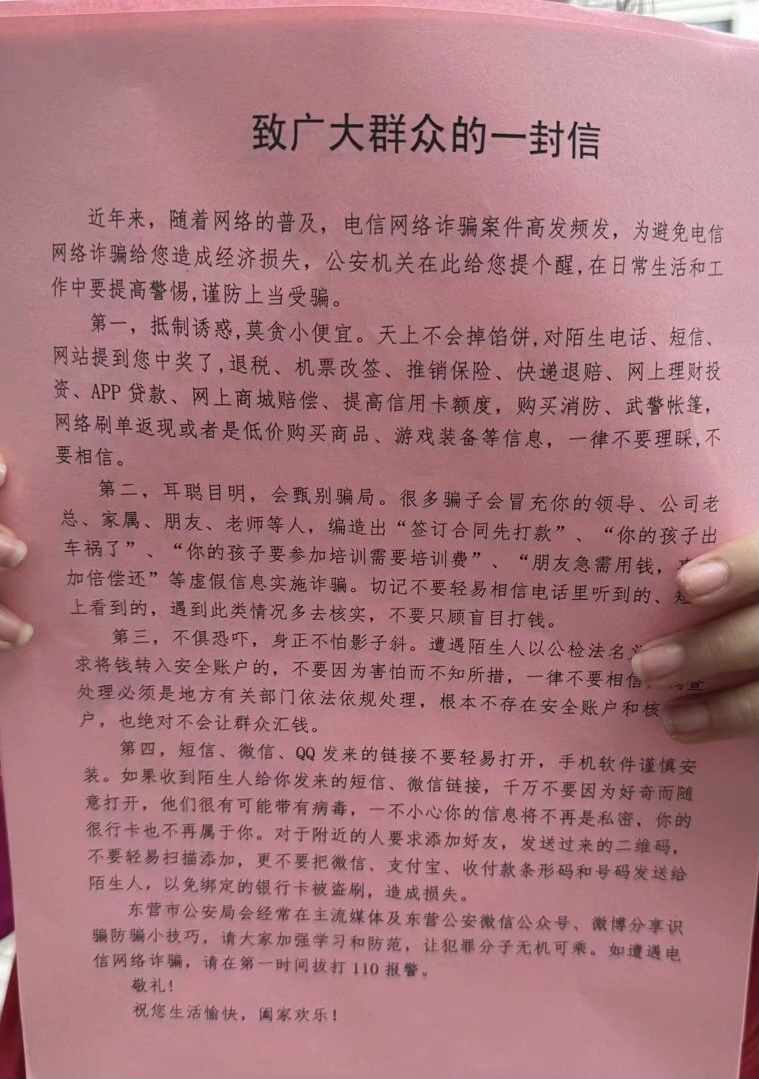 致广大群众的一封信
近年来，随着网络的普及，电信网络诈骗案件高发频发，为避免电信
网络诈骗给您造成经济损失，公安机关在此给您提个醒,在日常生活和工
作中要提高警惕,谨防上当受骗。
第一，抵制诱惑,莫贪小便宜。天上不会掉馅饼,对陌生电话、短信、
网站提到您中奖了,退税、机票改签、推销保险、快递退赔、网上理财投
资、APP 贷款、网上商城赔偿、提高信用卡额度，购买消防、武警帐篷，
网络刷单返现或者是低价购买商品、游戏装备等信息，一律不要理睬,不
要相信。
第二，耳聪目明，会甄别骗局。很多骗子会冒充你的领导、公司老
总、家属、朋友、老师等人，编造出“签订合同先打款”、“你的孩子出
车祸了”、“你的孩子要参加培训需要培训费”、“朋友急需用钱，
加倍偿还”等虚假信息实施诈骗。切记不要轻易相信电话里听到的、短
上看到的，遇到此类情况多去核实，不要只顾盲目打钱。
第三，不俱恐吓，身正不怕影子斜。遭遇陌生人以公检法名
求将钱转入安全账户的，不要因为害怕而不知所措，一律不要相信
处理必须是地方有关部门依法依规处理，根本不存在安全账户和核
户，也绝对不会让群众汇钱。
第四，短信、微信、QQ 发来的链接不要轻易打开，手机软件谨慎安
装。如果收到陌生人给你发来的短信、微信链接，千万不要因为好奇而随
意打开，他们很有可能带有病毒，一不小心你的信息将不再是私密，你的
很行卡也不再属于你。对于附近的人要求添加好友，发送过来的二维码，
不要轻易扫描添加，更不要把微信、支付宝、收付款条形码和号码发送给
陌生人，以免绑定的银行卡被盗刷，造成损失。
东营市公安局会经常在主流媒体及东营公安微信公众号、微博分享识
骗防骗小技巧，请大家加强学习和防范，让犯罪分子无机可乘。如遭遇电
信网络诈骗，请在第一时间拔打 110 报警。
敬礼!
祝您生活愉快，阖家欢乐!